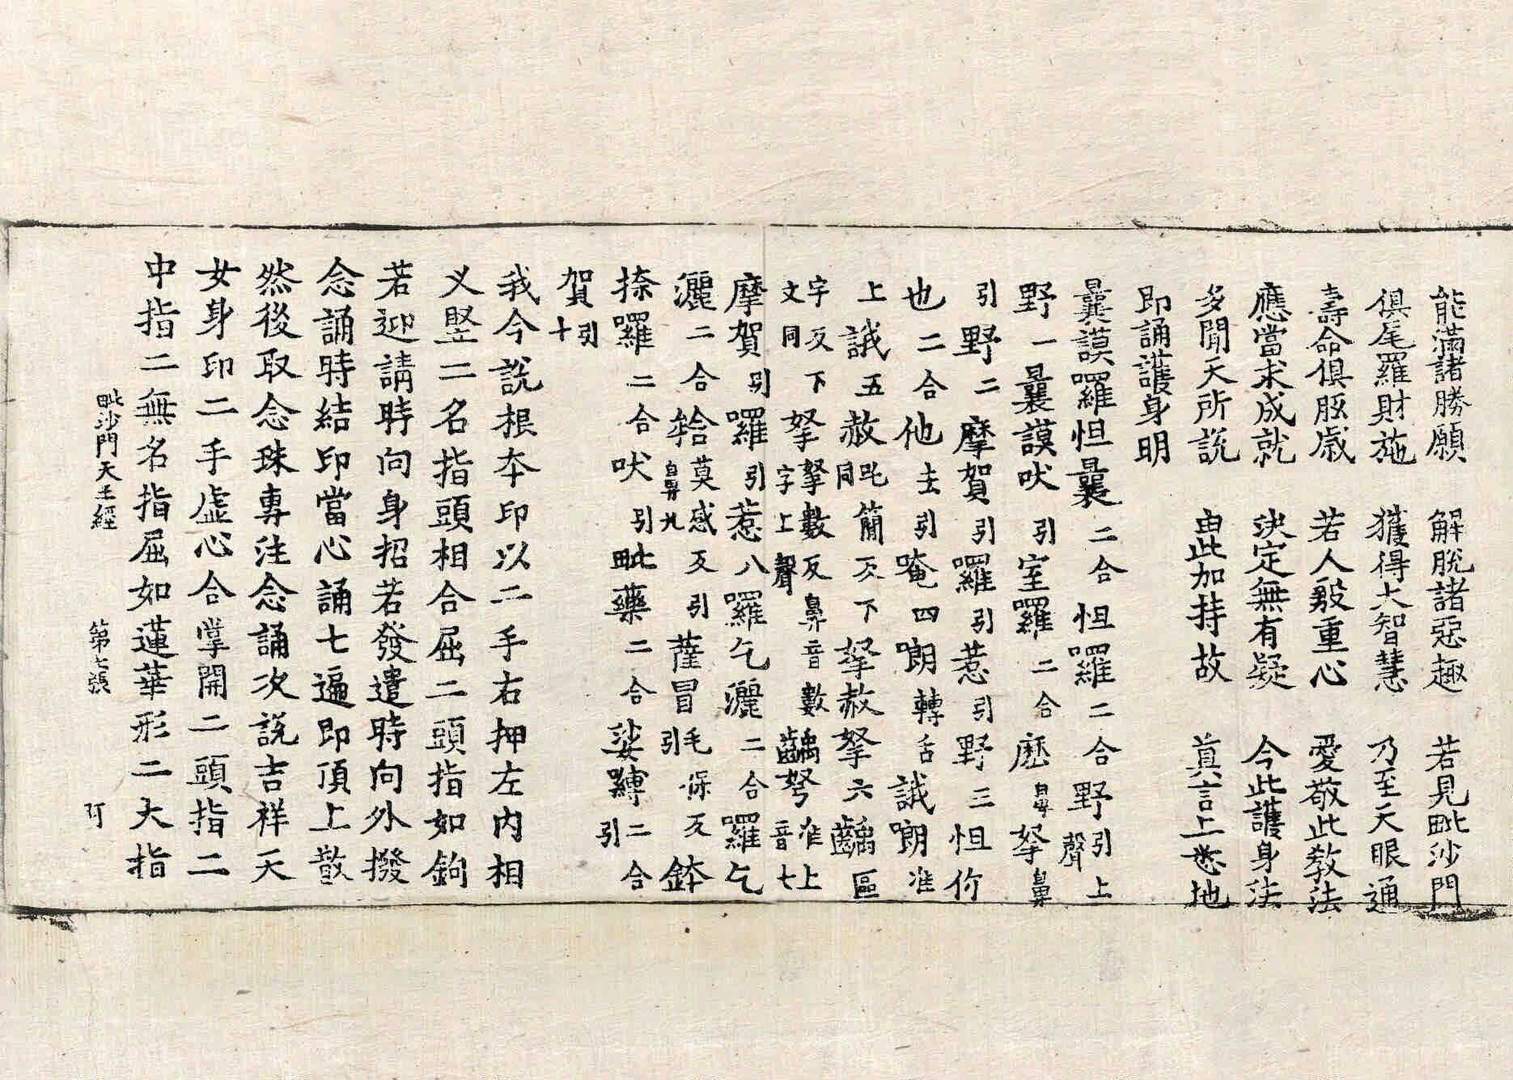 能滿諸勝願　解脫諸惡趣　若見毗沙門
俱尾羅財施　獲得大智慧　乃至天眼通
壽命俱胝歲　若人敬重心　愛敬此教法
應當求成就　決定無有疑　今此護身法
多聞天所說　由此加持故　真言上悉地
即誦護身明
曩謨囉怛曩二合怛囉二合野引上聲
野一曩謨吠引室囉二合麽鼻拏鼻
引野二摩賀引囉引惹引野三怛你
也二合他去引唵四㘓轉舌誐㘓准
上誐五赦吒簡反下同拏赦拏六齲區
字反下文同拏拏數反鼻音數字上聲齲弩准上音七
摩賀引囉引惹八囉乞灑二合囉乞
灑二合莫感反引鼻九薩冒毛保反引鉢
捺囉二合吠引毗藥二合娑嚩二合引
賀引十
我今說根本印以二手右押左內相
义竪二名指頭相合屈二頭指如鉤
若迎請時向身招若發遣時向外撥
念誦時結印當心誦七遍即頂上散
然後取念珠專注念誦次說吉祥天
女身印二手虛心合掌開二頭指二
中指二無名指屈如蓮華形二大指
毗沙門天王經　第七張　阿